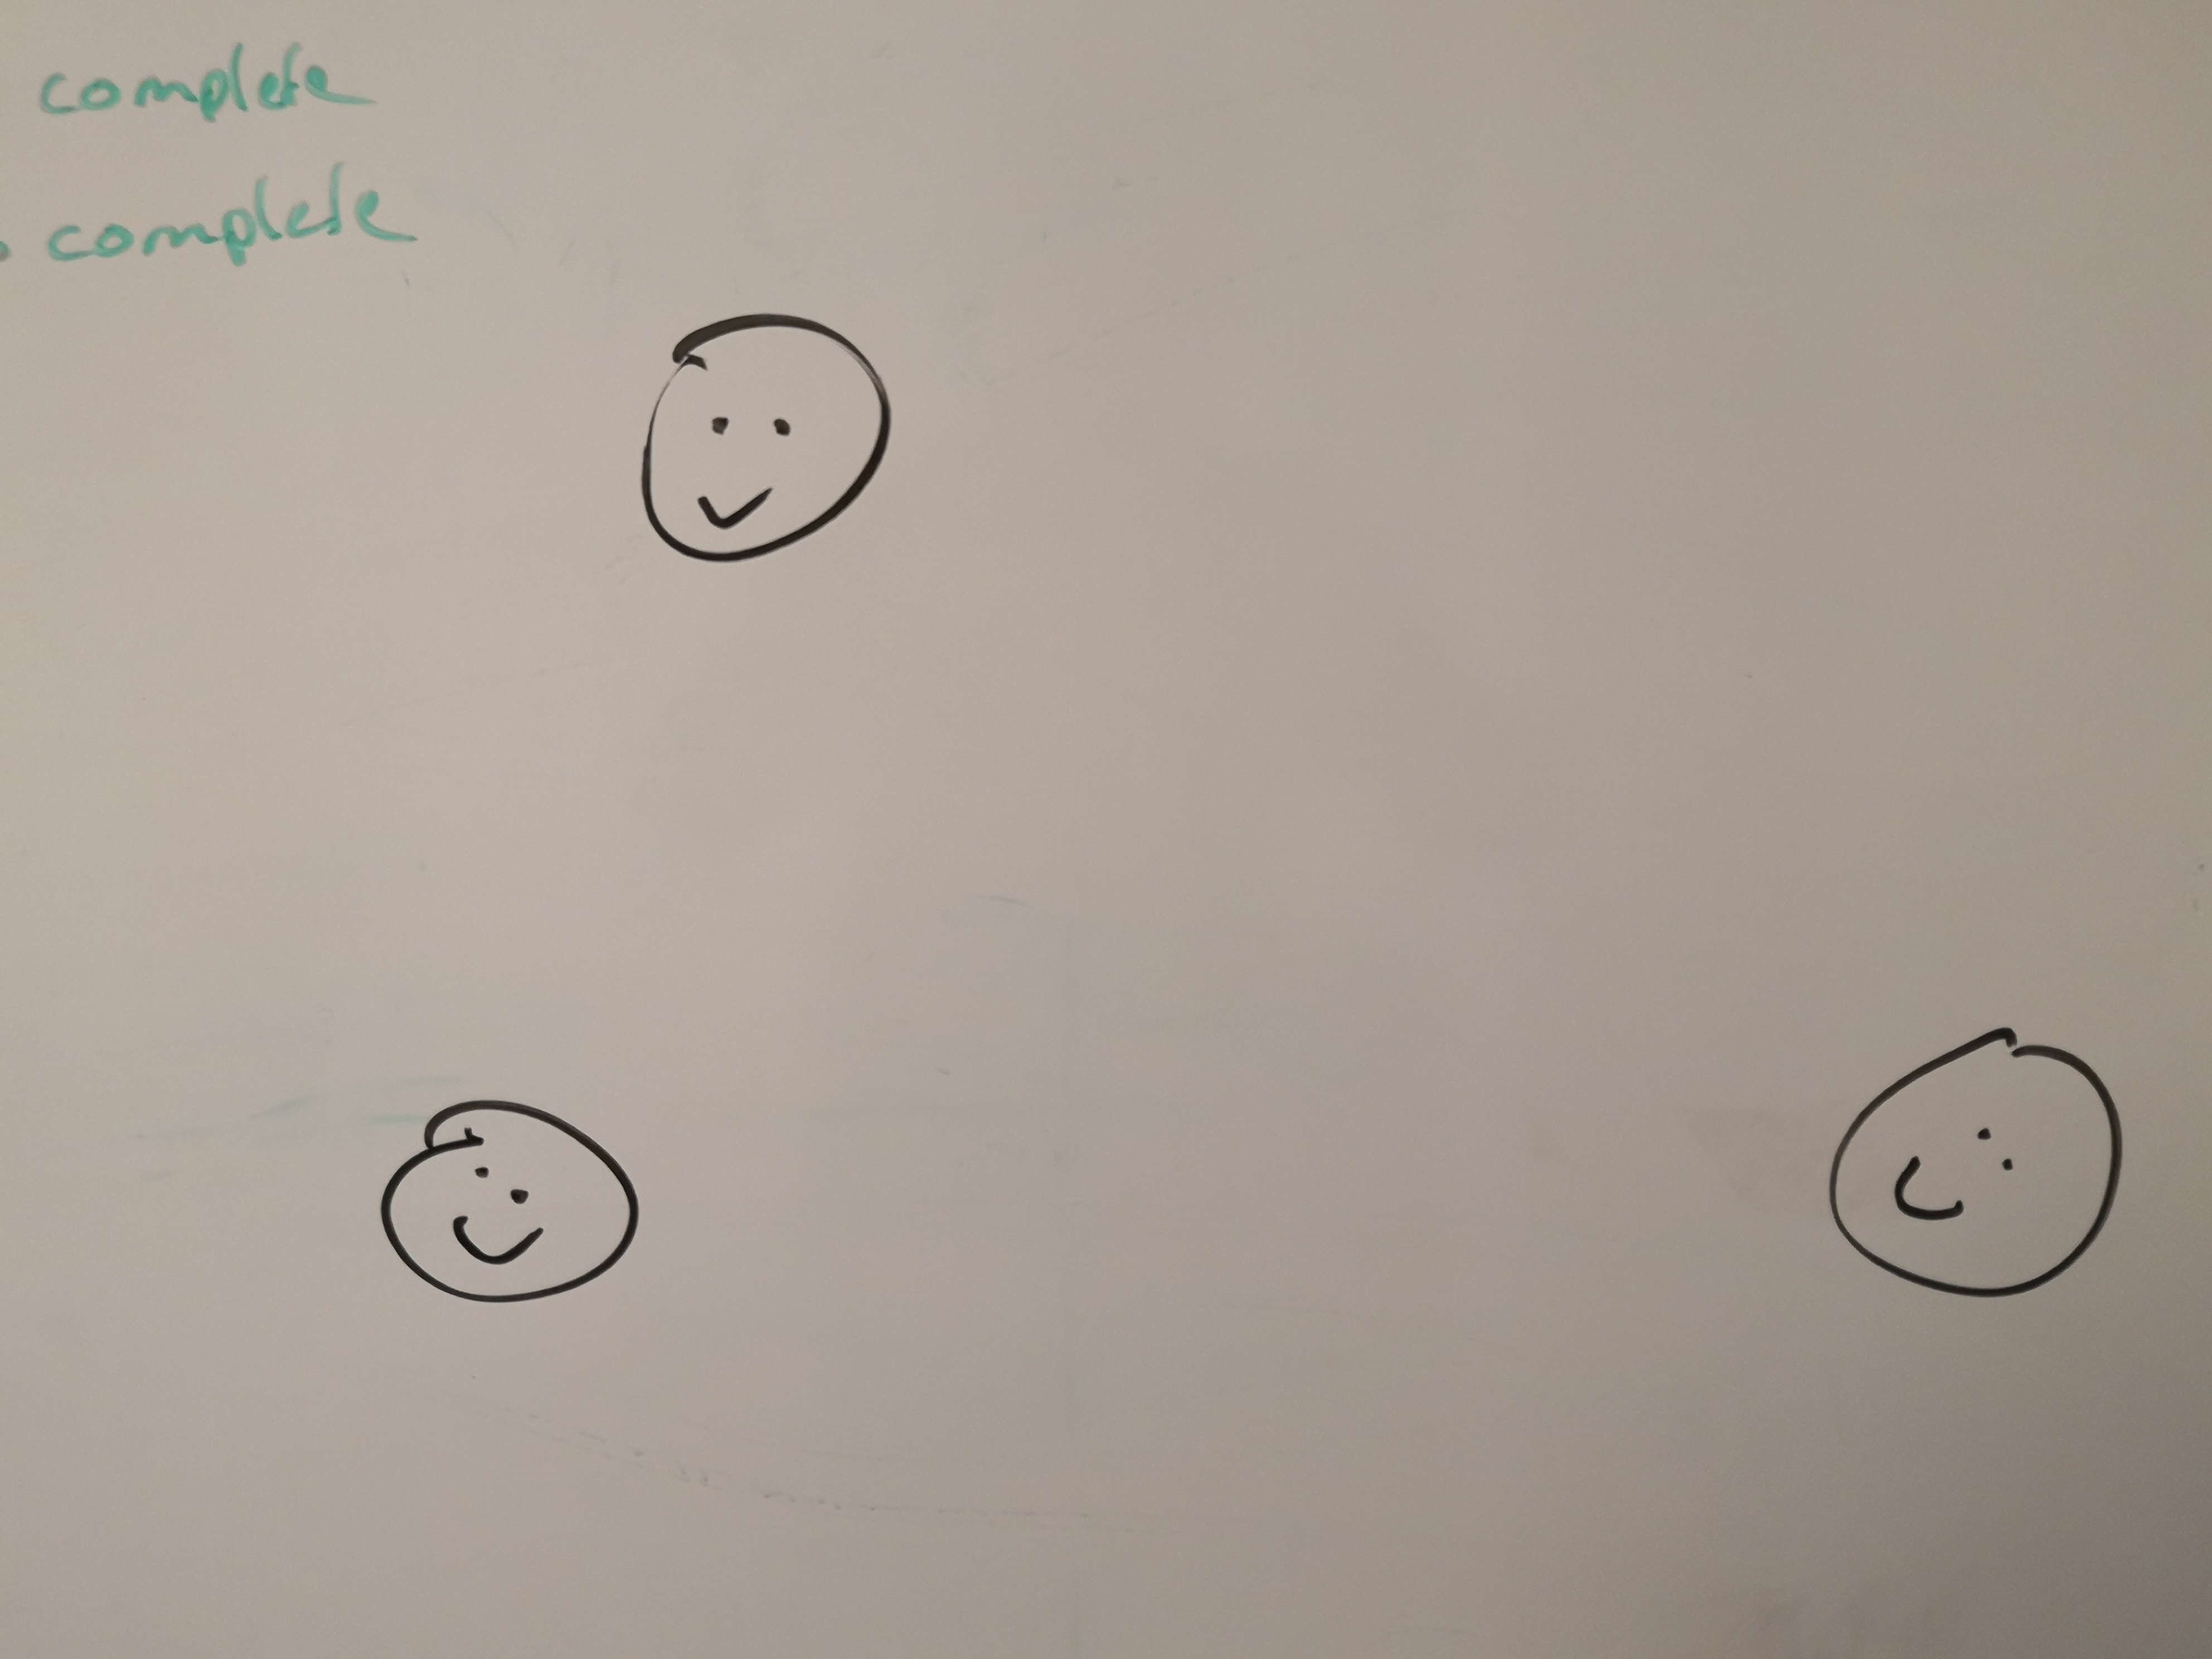 complete
complete